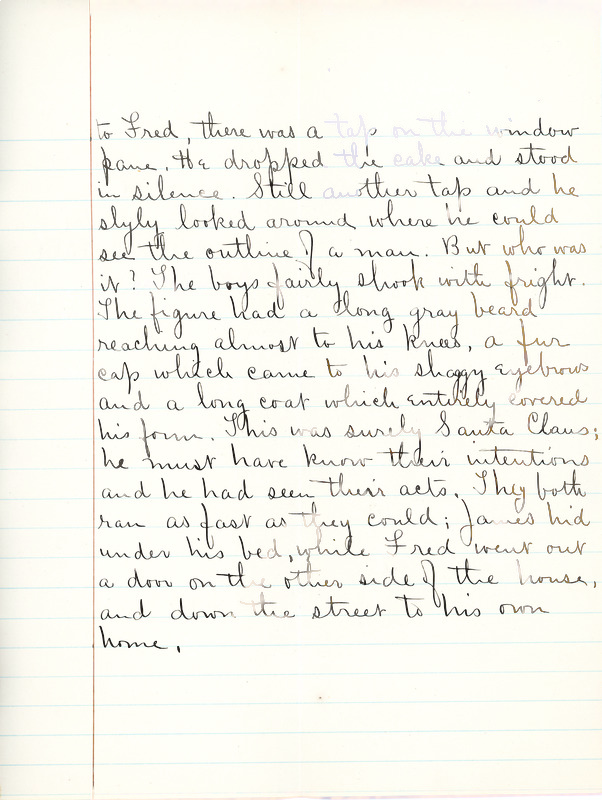 to Fred, there was a tap on the window
pane. He dropped the cake and stood
in silence. Still another tap and he
slyly looked around where he could
see the outline of a man. But who was
it? The boys fairly shook with fright.
The figure had a long gray beard
reaching almost to his knees, a fur
cap which came to his shaggy eyebrows
and a long coat which entirely covered
his form. This was surely Santa Claus;
he must have know their intentions
and he had seen their acts. They both
ran as fast as they could; James hid
under his bed, while Fred went out
a door on the other side of the house,
and down the street to his own
home.